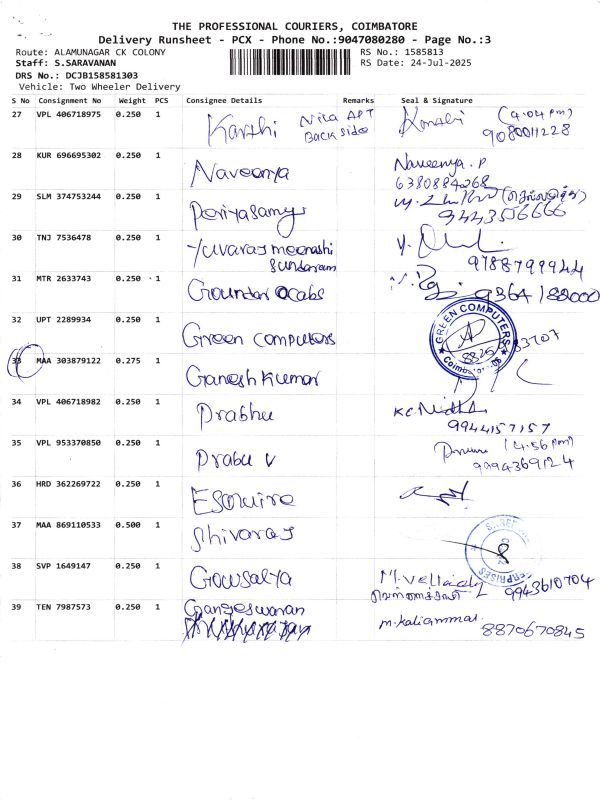 THE PROFESSIONAL COURIERS, COIMBATORE
Delivery Runsheet - PCX - Phone No.:9047080280 - Page No.:3
Route: ALAMUNAGAR CK COLONY RS No.: 1585813
Staff: S.SARAVANAN RS Date: 24-Jul-2025
DRS No.: DCJB158581303
Vehicle: Two Wheeler Delivery
S No Consignment No Weight PCS Consignee Details Remarks Seal & Signature
27 VPL 406718975 0.250 1 Karthi Nila APT (4.04 pm)
Back side 9080011228
28 KUR 696695302 0.250 1 Naveenya Naveenya.P
6380884268
29 SLM 374753244 0.250 1 Periyasamy
9443556666
30 TNJ 7536478 0.250 1 Yuvaraj meenashi
Sundaram 9788799944
31 MTR 2633743 0.250 1 Goundar Ocabs 9364188000
32 UPT 2289934 0.250 1 Green computers GREEN COMPUTERS
33 MAA 303879122 0.275 1 Ganesh Kumar
34 VPL 406718982 0.250 1 Prabhu
9944157157
35 VPL 953370850 0.250 1 Prabu V (4.56 pm)
9994369124
36 HRD 362269722 0.250 1 Esquire
37 MAA 869110533 0.500 1 Shivaraj
38 SVP 1649147 0.250 1 Gowsalya M.Vellaidy
9943610704
39 TEN 7987573 0.250 1 Gangeswaran m.kaliammal
8870670845